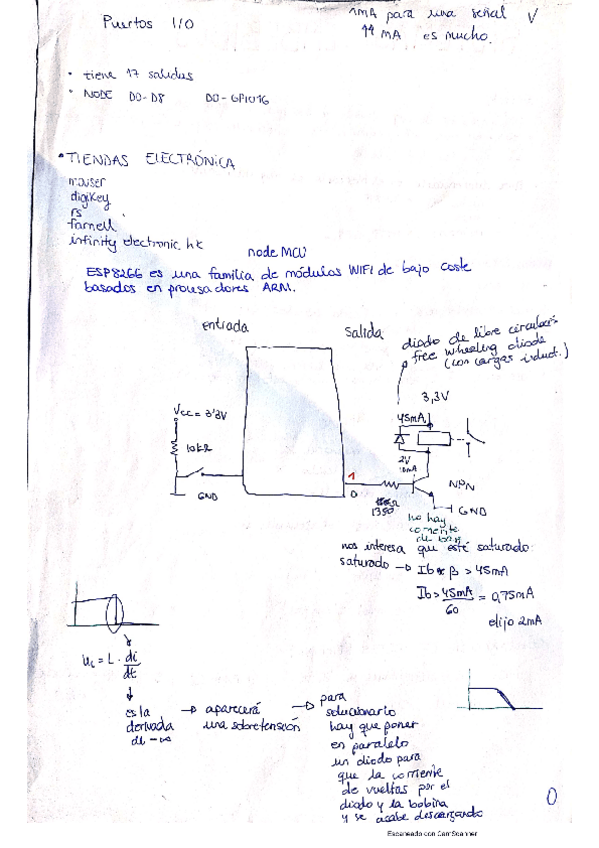 Puertos I/O
1mA para una señal V
mA es mucho.
• tiene 17 salidas
• NODE D0-D8 D0-GPIO16
• TIENDAS ELECTRÓNICA
mouser
digikey
rs
farnell
infinity electronic hk
node MCU
ESP8266 es una familia de módulos WIFI de bajo coste
basados en procesadores ARM.
entrada
salida
diodo de libre circulación
free wheeling diode
(con cargas induct.)
3,3V
45mA
Vcc = 3'3V
10kΩ
2V
1
0
NPN
GND
GND
1350
no hay
corriente
de
nos interesa que esté saturado
saturado → Ib * β > 45mA
Ib > 45mA/60 = 0,75mA
elijo 2mA
uL = L · di/dt
es la
derivada
de -∞
→ aparecerá
una sobretensión
→ para
solucionarlo
hay que poner
en paralelo
un diodo para
que la corriente
de vueltas por el
diodo y la bobina
y se acabe descargando
0
Escaneado con CamScanner